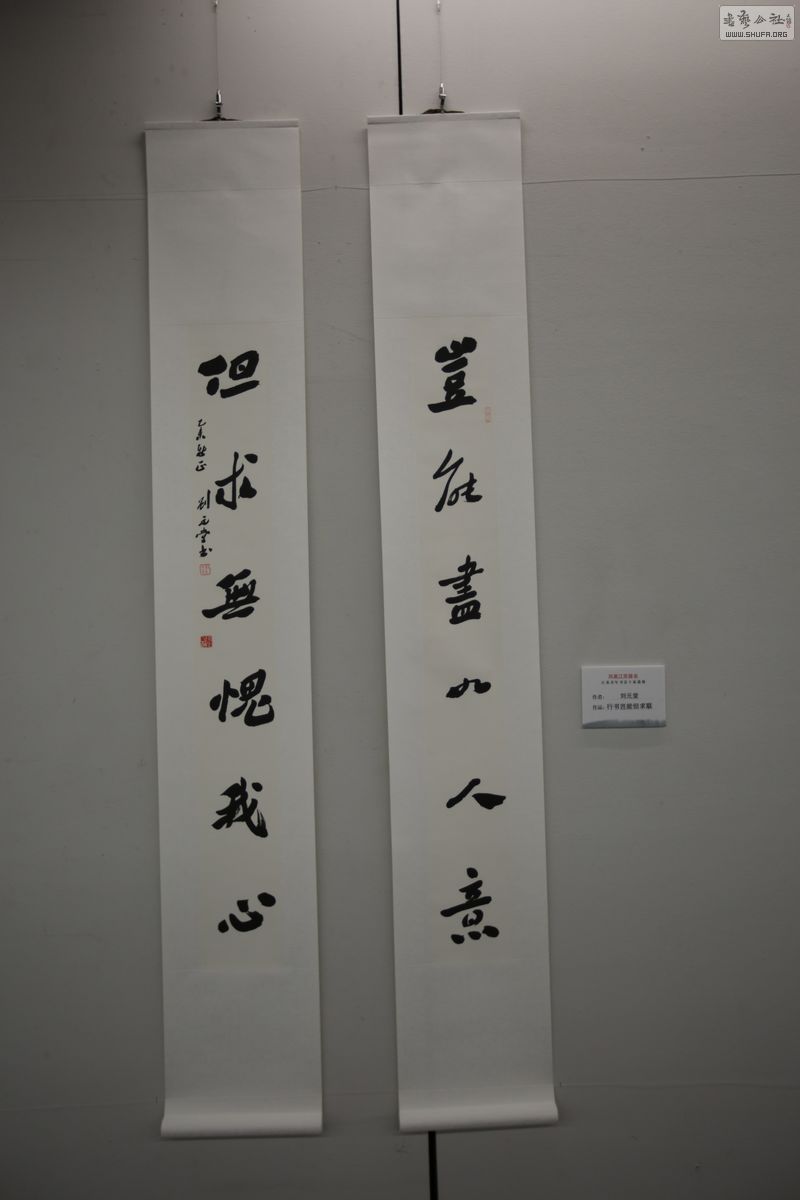 豈能盡如人意
但求無愧我心
乙未 劉元堂書
作者： 刘元堂
作品：行书岂能但求联
書藝公社
WWW.SHUFA.ORG